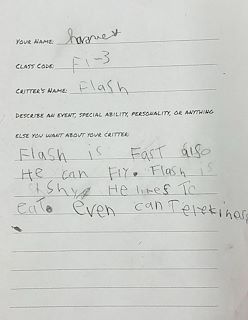 YOUR NAME: harvest
CLASS CODE: F1-3
CRITTER'S NAME: Flash
DESCRIBE AN EVENT, SPECIAL ABILITY, PERSONALITY, OR ANYTHING
ELSE YOU WANT ABOUT YOUR CRITTER:
Flash is Fast also
He can Fly. Flash is
Shy. He likes To
eat. even can